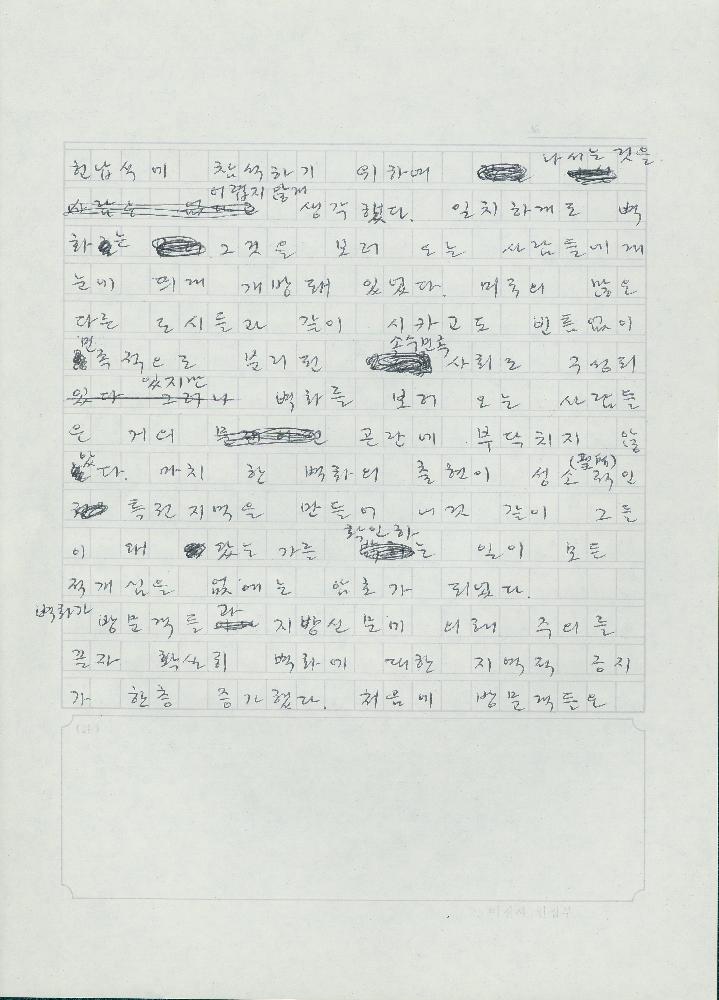 헌납식에 참석하기 위하여 나서는 것을
어렵지 않게 생각했다. 일치하게도 벽
화는 그것을 보러 오는 사람들에게
눈에 띄게 개방돼 있었다. 미국의 많은
다른 도시들과 같이 시카고도 빈틈없이
민족적으로 분리된 소수민족 사회로 구성되
있다 그러나 있지만 벽화를 보러 오는 사람들
은 거의 곤란에 부닥치지 않
았다. 마치 한 벽화의 출현이 성소(聖所)적인
특전 지역을 만들어 낸것 같이 그들
이 왜 왔는가를 확인하는 일이 모든
적개심을 없애는 암호가 되었다.
벽화가 방문객들과 지방신문에 의해 주의를
끌자 확실히 벽화에 대한 지역적 긍지
가 한층 증가했다. 처음에 방문객들은